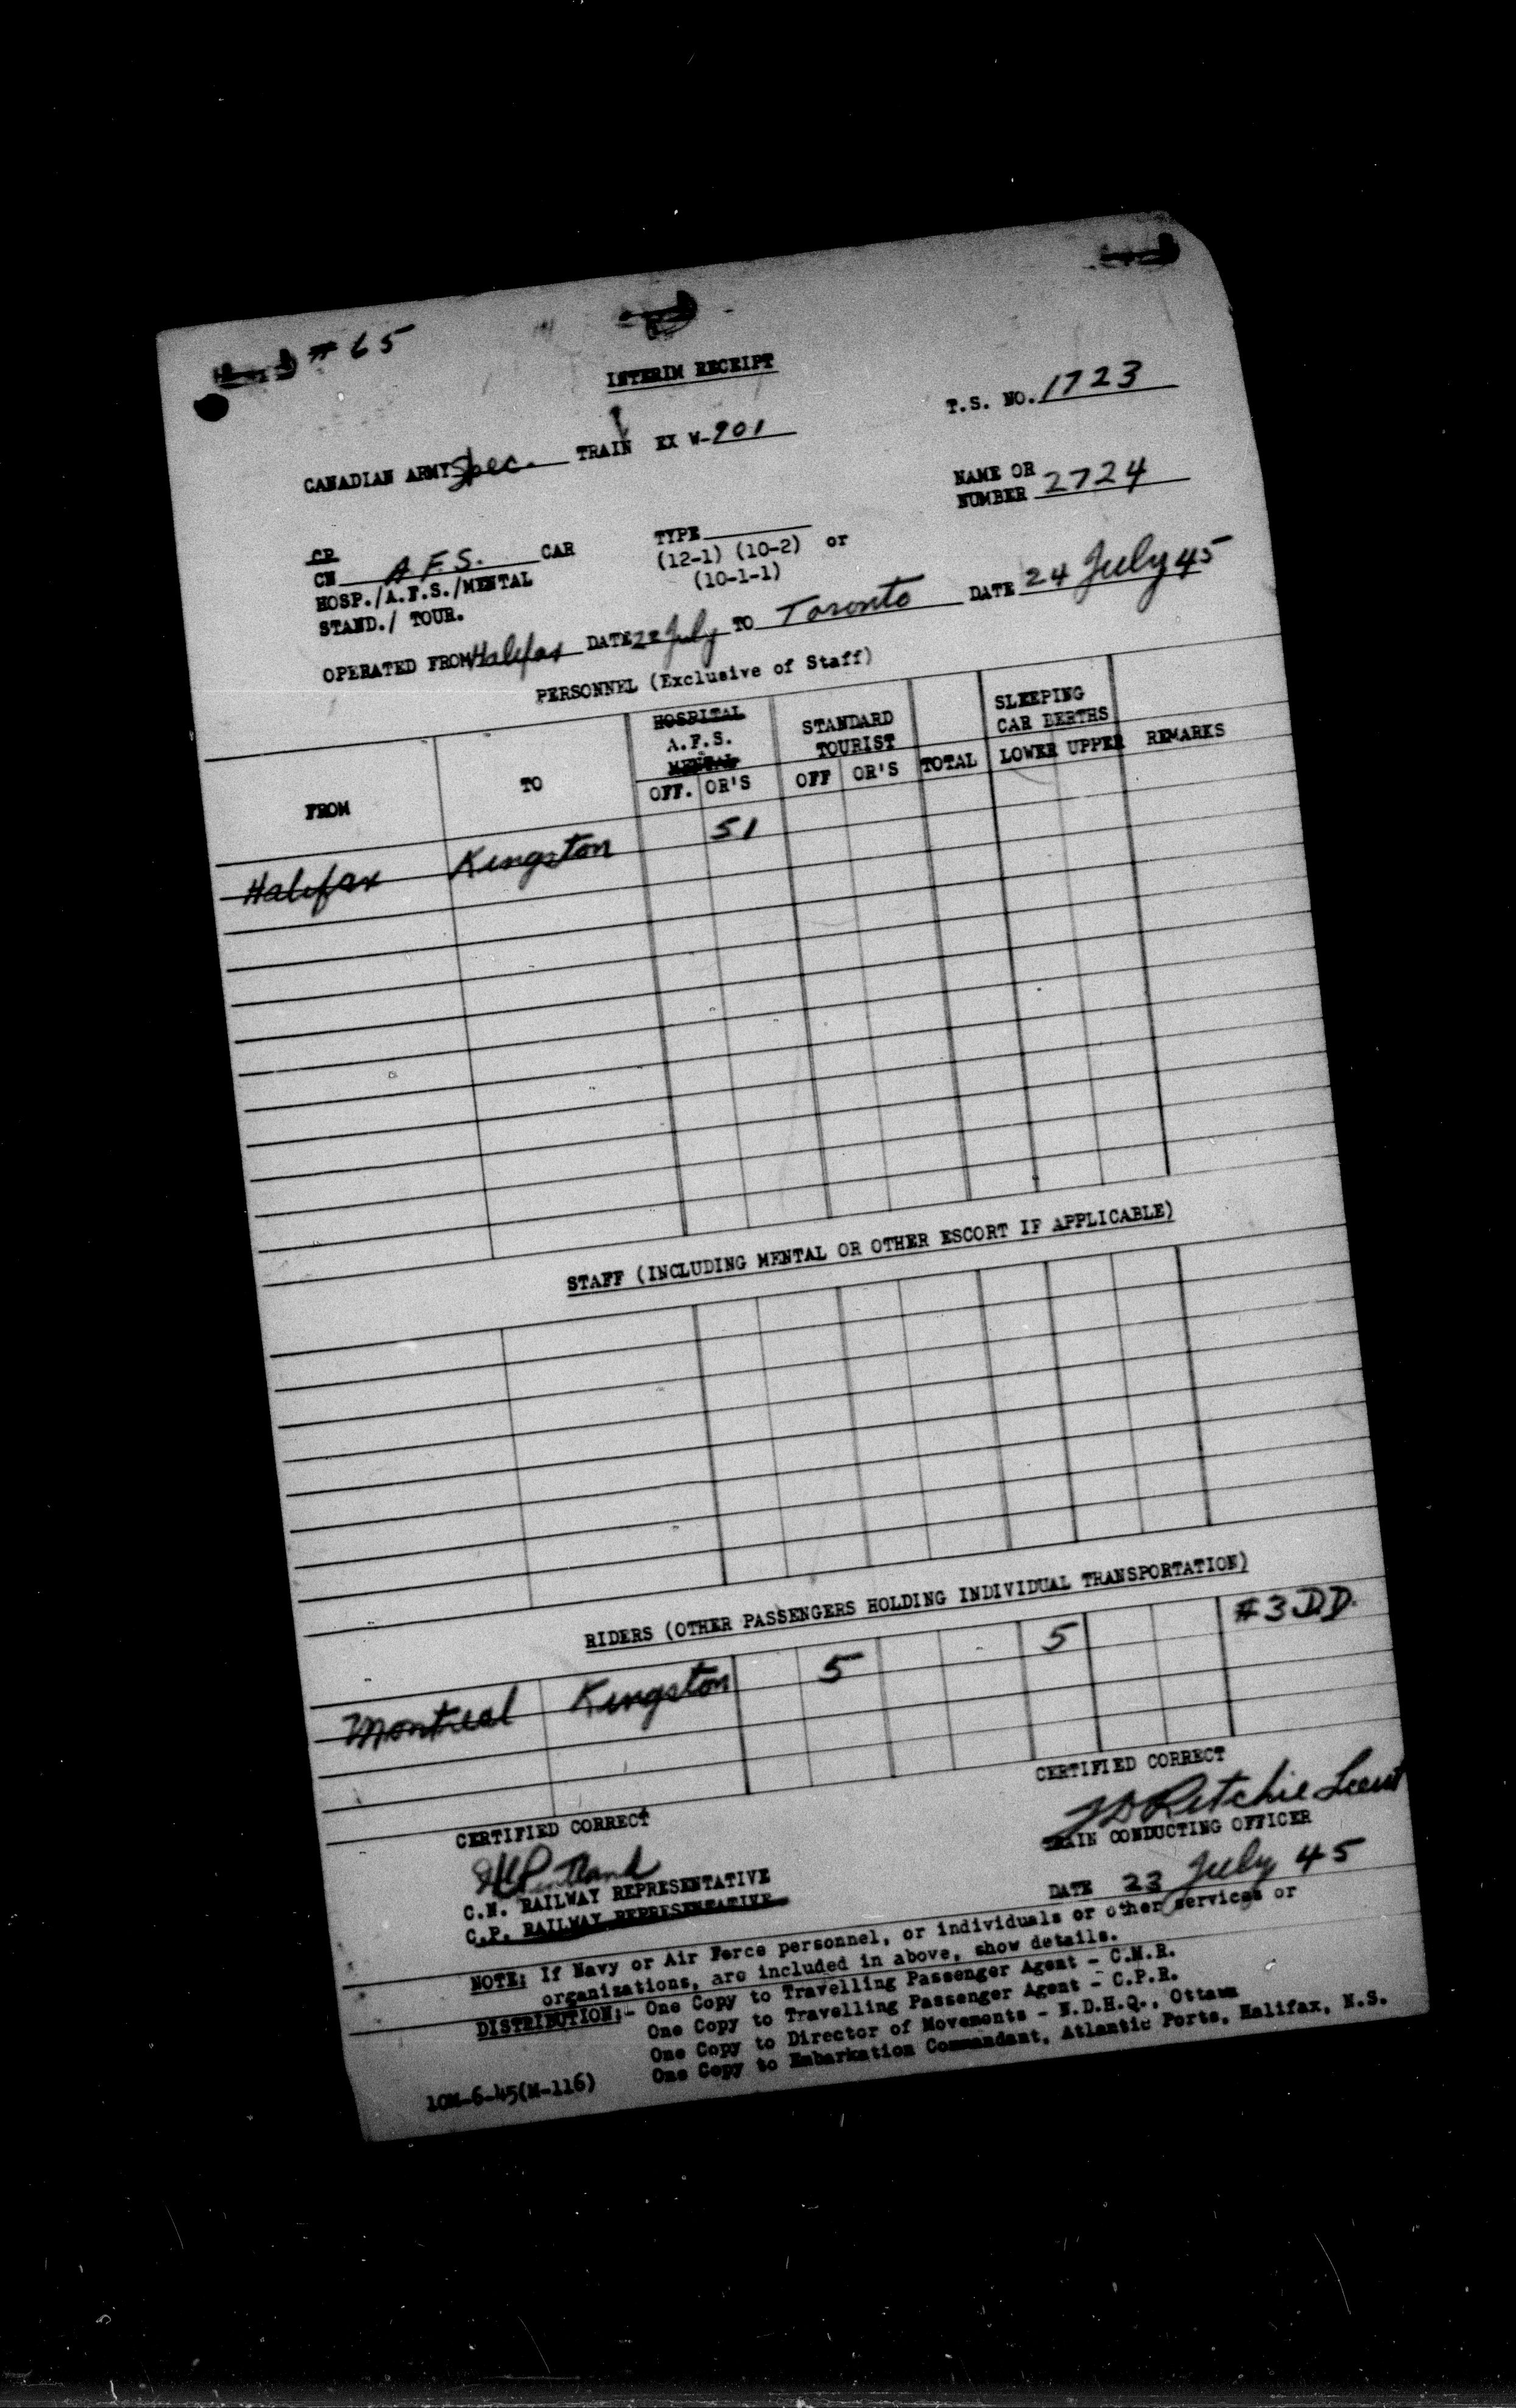 # 65
INTERIM RECEIPT
T.S. NO. 1723
CANADIAN ARMY Spec. TRAIN EX W-901
NAME OR
NUMBER 2724
CP
CN A.F.S. CAR
HOSP./A.F.S./MENTAL
STAND./ TOUR.
TYPE
(12-1) (10-2) or
(10-1-1)
OPERATED FROM Halifax DATE July TO Toronto DATE 24 July 45
PERSONNEL (Exclusive of Staff)
FROM TO HOSPITAL A.F.S. MENTAL STANDARD TOURIST TOTAL SLEEPING CAR BERTHS REMARKS
OFF. OR'S OFF OR'S LOWER UPPER
Halifax Kingston 51
STAFF (INCLUDING MENTAL OR OTHER ESCORT IF APPLICABLE)
RIDERS (OTHER PASSENGERS HOLDING INDIVIDUAL TRANSPORTATION)
Montreal Kingston 5 5 #3 DD.
CERTIFIED CORRECT
C.N. RAILWAY REPRESENTATIVE
C.P. RAILWAY REPRESENTATIVE
CERTIFIED CORRECT
Ritchie Lieut
TRAIN CONDUCTING OFFICER
DATE 23 July 45
NOTE: If Navy or Air Force personnel, or individuals or other services or
organizations, are included in above, show details.
DISTRIBUTION:- One Copy to Travelling Passenger Agent - C.N.R.
One Copy to Travelling Passenger Agent - C.P.R.
One Copy to Director of Movements - N.D.H.Q., Ottawa
One Copy to Embarkation Commandant, Atlantic Ports, Halifax, N.S.
10M-6-45(M-116)